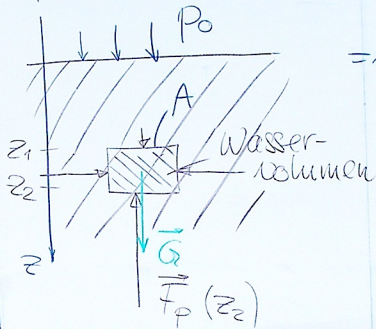 p₀
=
A
z₁
Wasser-
volumen
z₂
G⃗
z
F⃗ₚ (z₂)